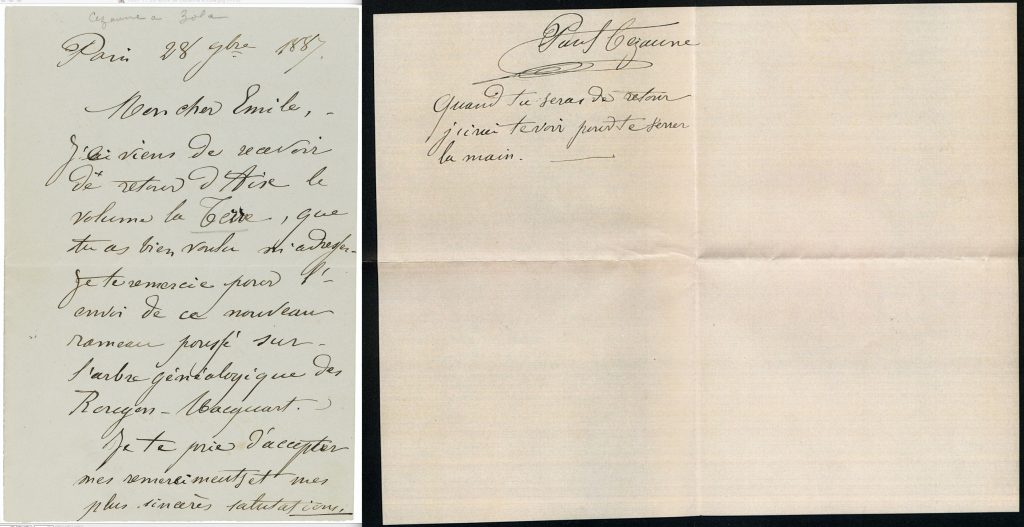 Cezanne a Zola
Paris 28 9bre 1887.
Mon cher Emile,
J'ai viens de recevoir
de retour d'Aix le
volume la Terre, que
tu as bien voulu m'adresser.
Je te remercie pour l'
envoi de ce nouveau
rameau poussé sur
l'arbre généalogique des
Rougon-Macquart.
Je te prie d'accepter
mes remerciments et mes
plus sincères salutations.
Paul Cezanne
Quand tu seras de retour
j'irai te voir pour te serrer
la main.